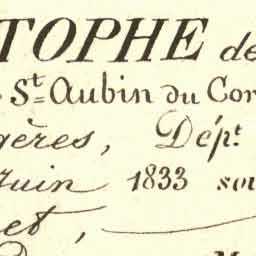 TOPHE de
St Aubin du Cor
gères, Dépt
juin 1833 sou
et,